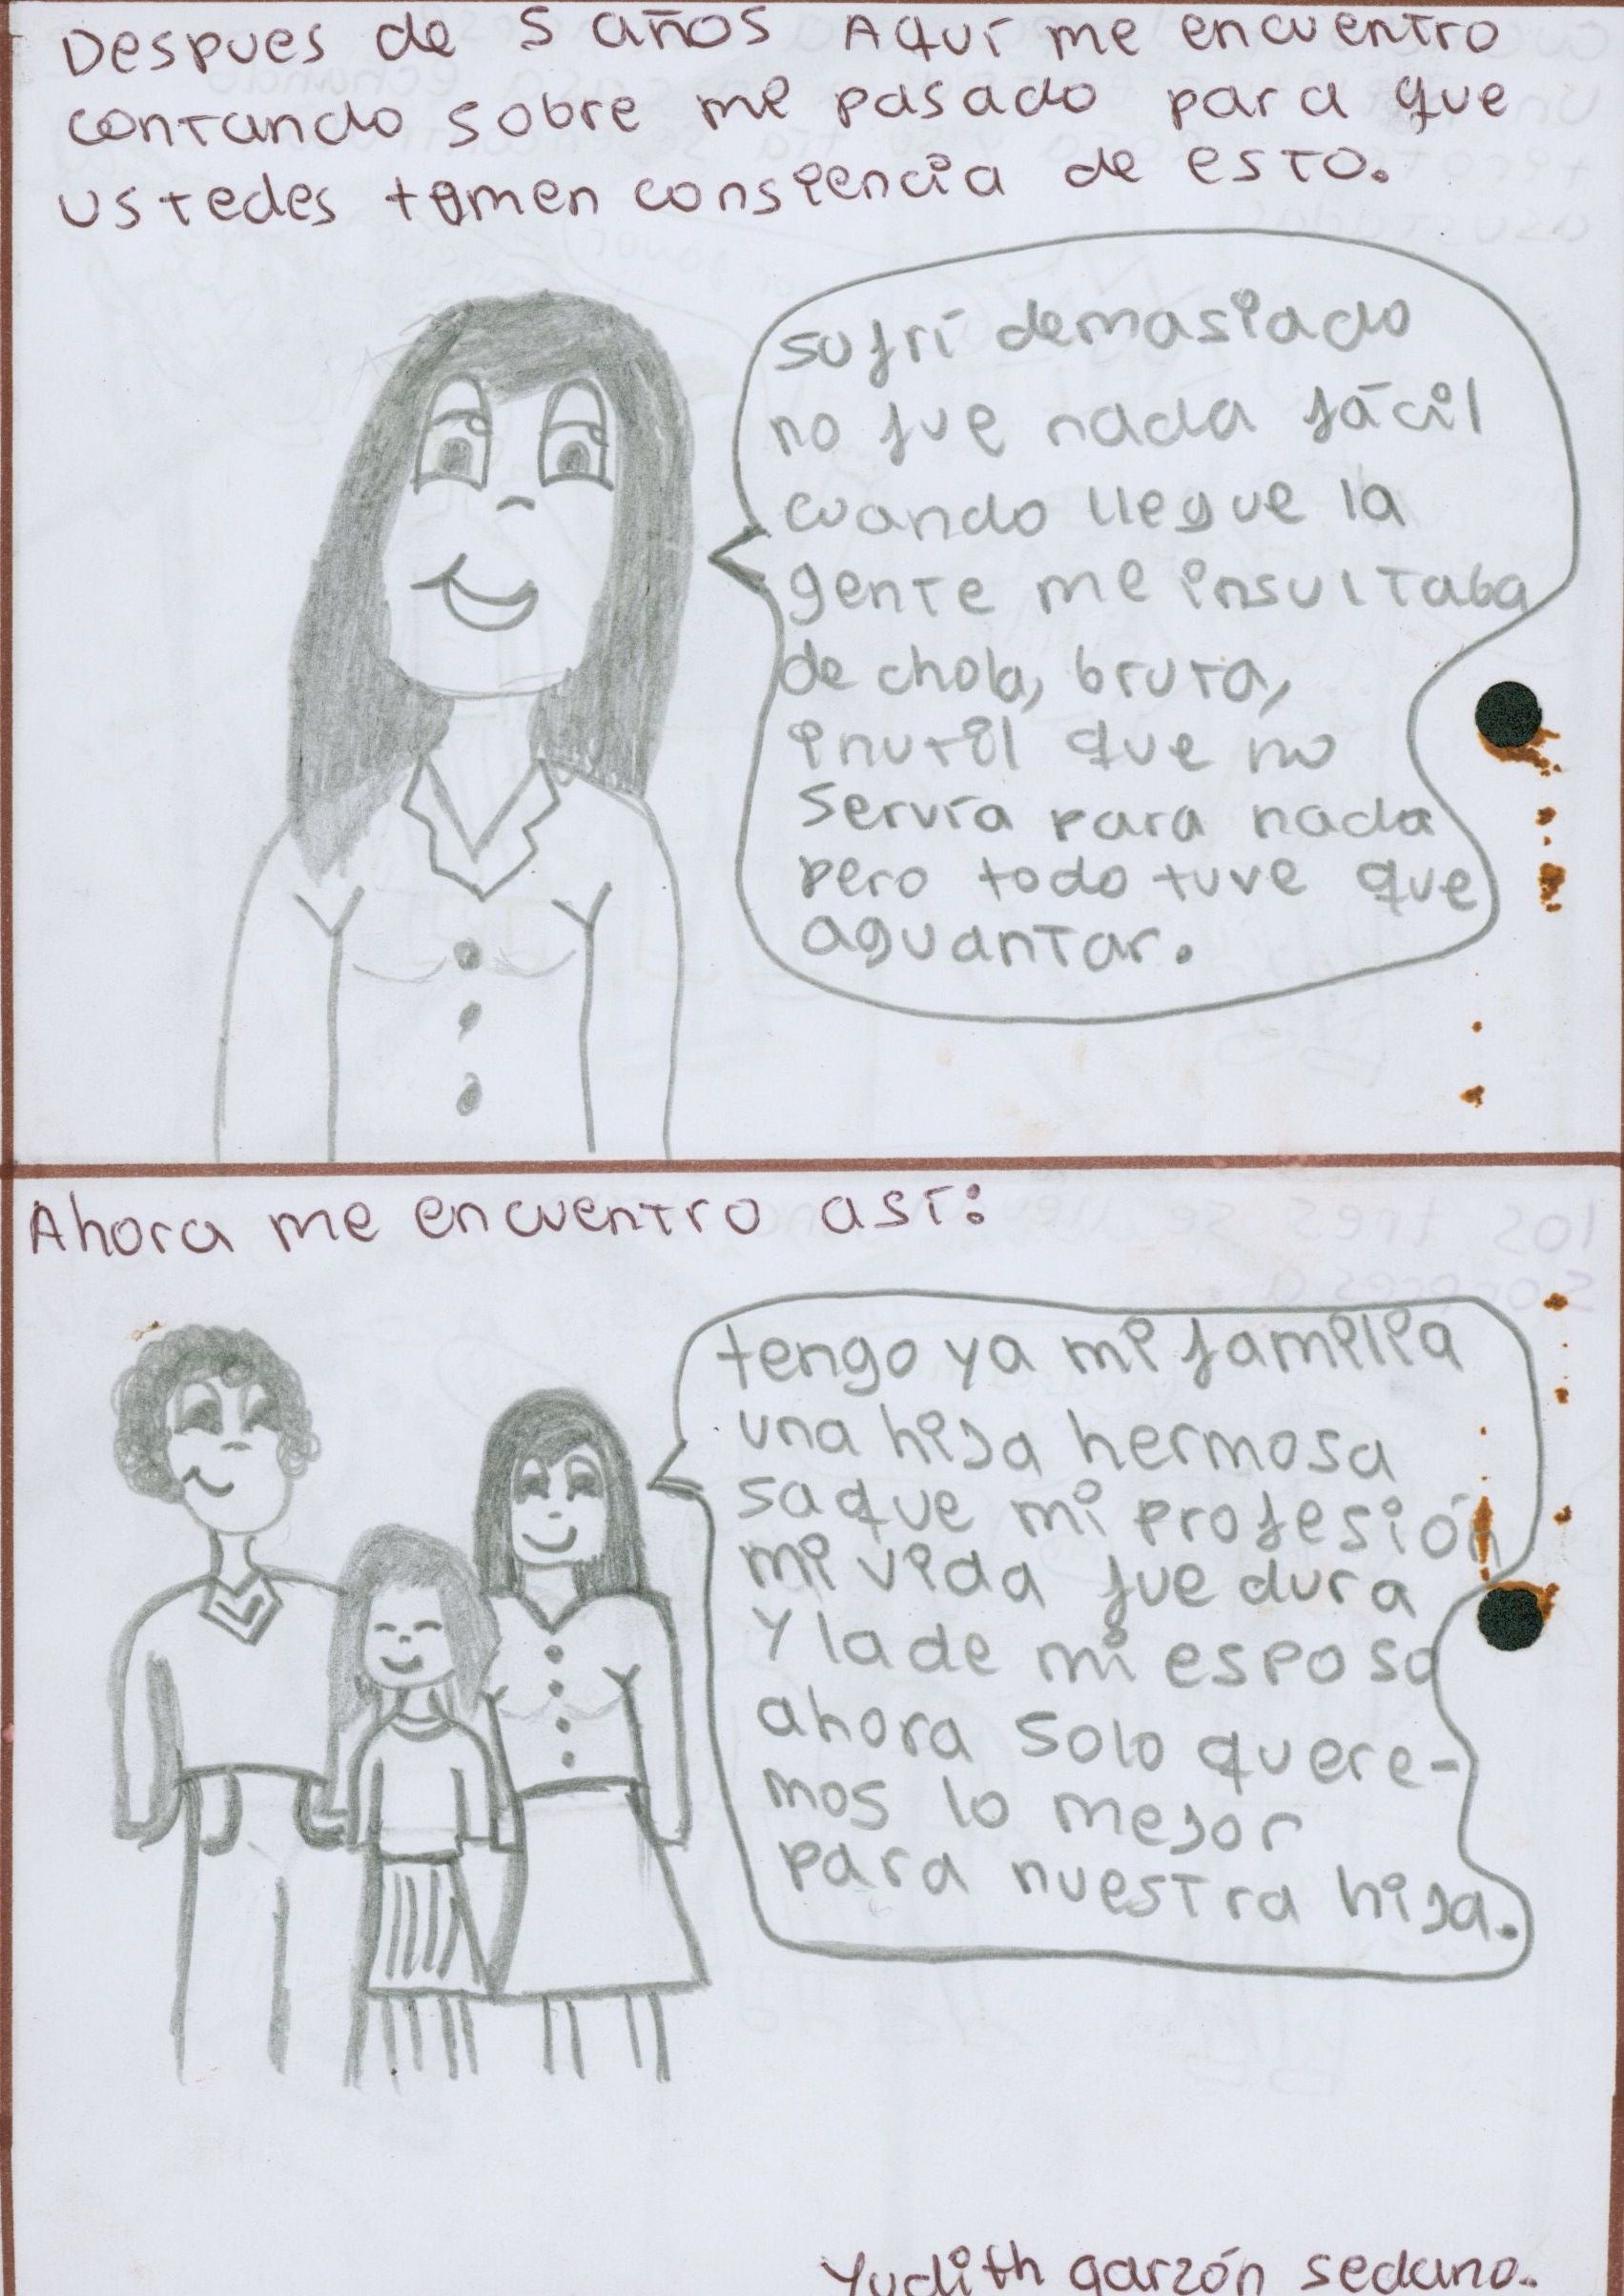 Despues de 5 años Aquí me encuentro
contando sobre me pasado para que
ustedes tomen consiencia de esto.
sufrí demasiado
no fue nada fácil
cuando llegue la
gente me insultaba
de chola, bruta,
inutil que no
servía para nada
pero todo tuve que
aguantar.
Ahora me encuentro así:
tengo ya mi familia
una hija hermosa
saque mi profesión
mi vida fue dura
y la de mi esposo
ahora solo quere-
mos lo mejor
para nuestra hija.
Yudith garzón sedano.